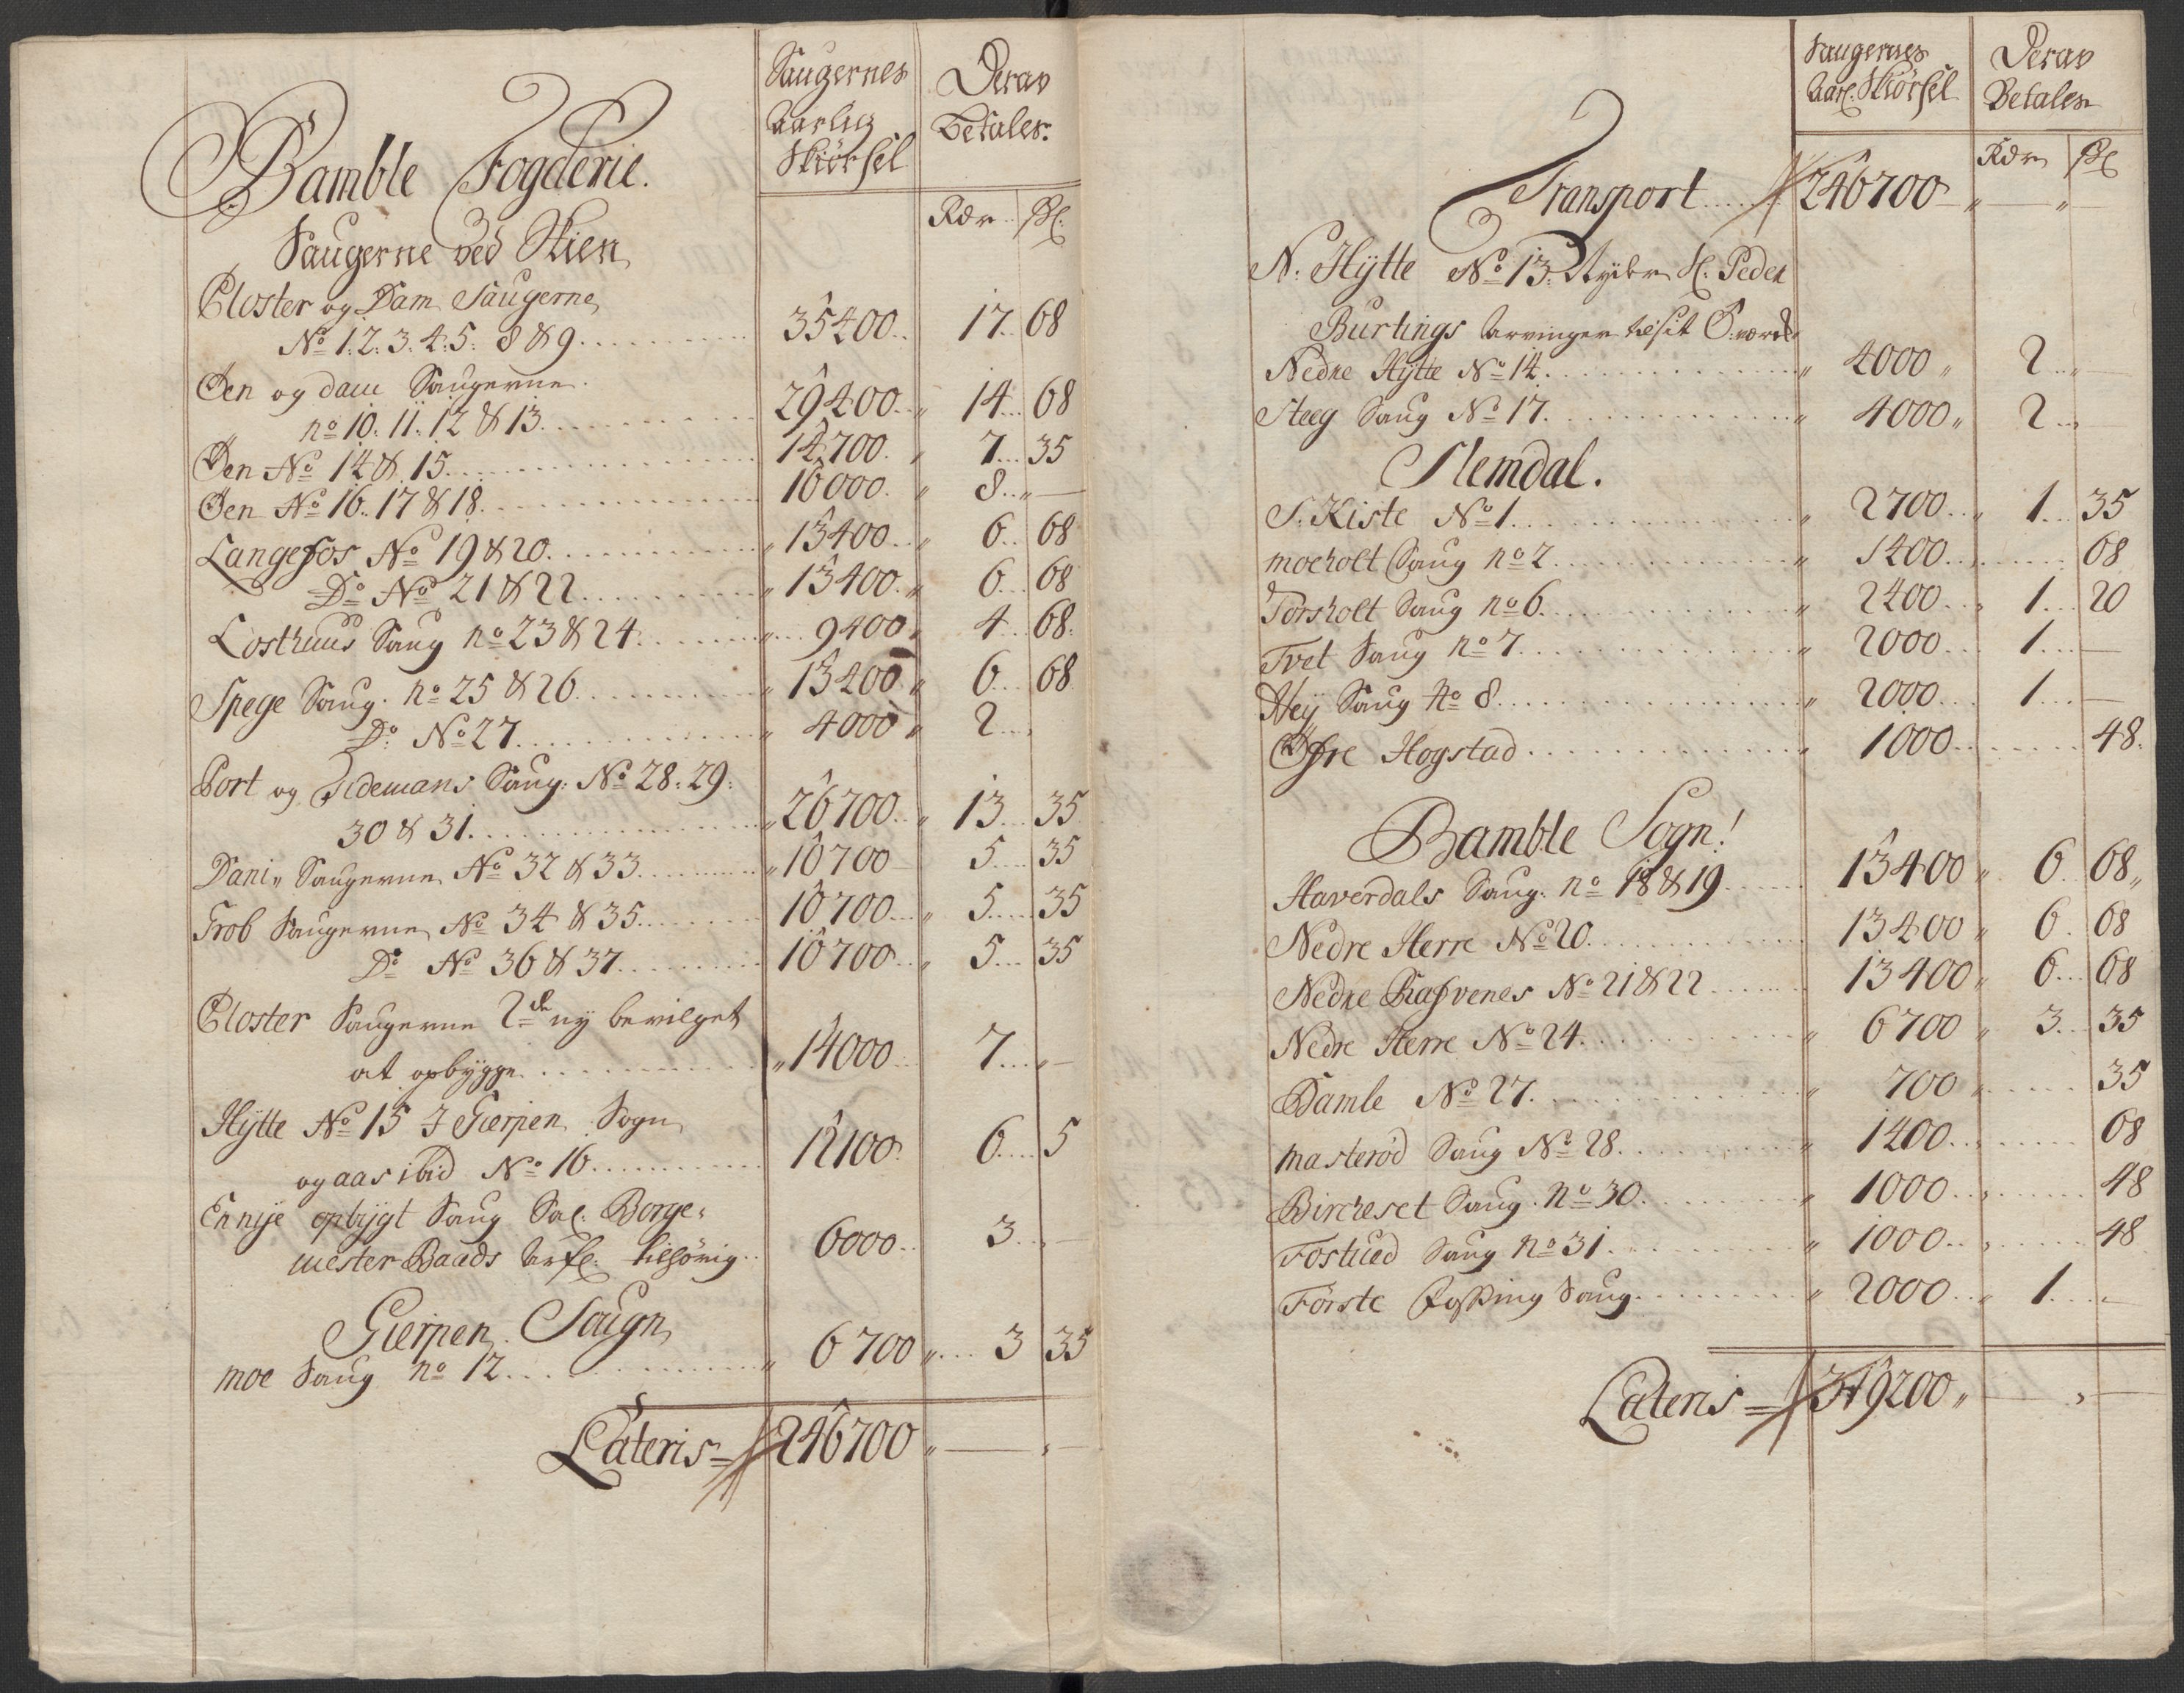 Saugernes Derav
aarlig Betales:
Skiörsel
Bamble Fogderie.
Rdr ß:
Saugerne ved Skien
Closter og Dam Saugerne
No 1. 2. 3. 4. 5. 8 & 9. 35400 17 68
Øen og dam Saugerne
no 10. 11. 12 & 13. 29400 14 68
Øen No 14 & 15. 14700 7 35
Øen No 16. 17 & 18. 16000 8 „
Langefos No 19 & 20. 13400 6 68
Do No 21 & 22. 13400 6 68
Losthuus Saug no 23 & 24. 9400 4 68
Spege Saug. no 25 & 26. 13400 6 68
Do No 27. 4000 2
Port og Tidemans Saug: No 28. 29.
30 & 31. 26700 13 35
Dani„ Saugerne No 32 & 33. 10700 5 35
Trob Saugerne No 34 & 35. 10700 5 35
Do No 36 & 37. 10700 5 35
Closter Saugerne 2de ny bevilget
at opbygge. 14000 7 „
Hÿtte No 15 I Gierpen Sogn
og aas ibid No 16. 12100 6 5
En nÿe opbÿgt Saug Sal: Borge„
mester Baads tilhörig 6000 3
Gierpen Saugn
moe Saug no 12. 6700 3 35
Lateris 246700
Saugernes Derav
aarl. Skiörsel Betales
Rdr ß
Transport 246700
N. Hÿtte No 13. H. Peder
Burtings arvinger
Nedre Hÿtte No 14. 4000 2
Steeg Saug No 17. 4000 2
Slemdal.
S. Kiste No 1. 2700 1 35
moeholt Saug no 2. 1400 68
Torsholt Saug no 6. 2400 1 20
Tvet Saug no 7. 2000 1
Aeÿ Saug No 8. 2000 1
Øfre Hogstad 1000 48
Bamble Sogn!
Haverdals Saug. no 18 & 19. 13400 6 68
Nedre Herre No 20. 13400 6 68
Nedre Rafvenes No 21 & 22 13400 6 68
Nedre Herre No 24. 6700 3 35
Bamle No 27. 700 35
Masteröd Saug No 28. 1400 68
Bircheset Saug. no 30. 1000 48
Fostued Saug no 31. 1000 48
Förste Fossing Saug. 2000 1
Lateris 319200